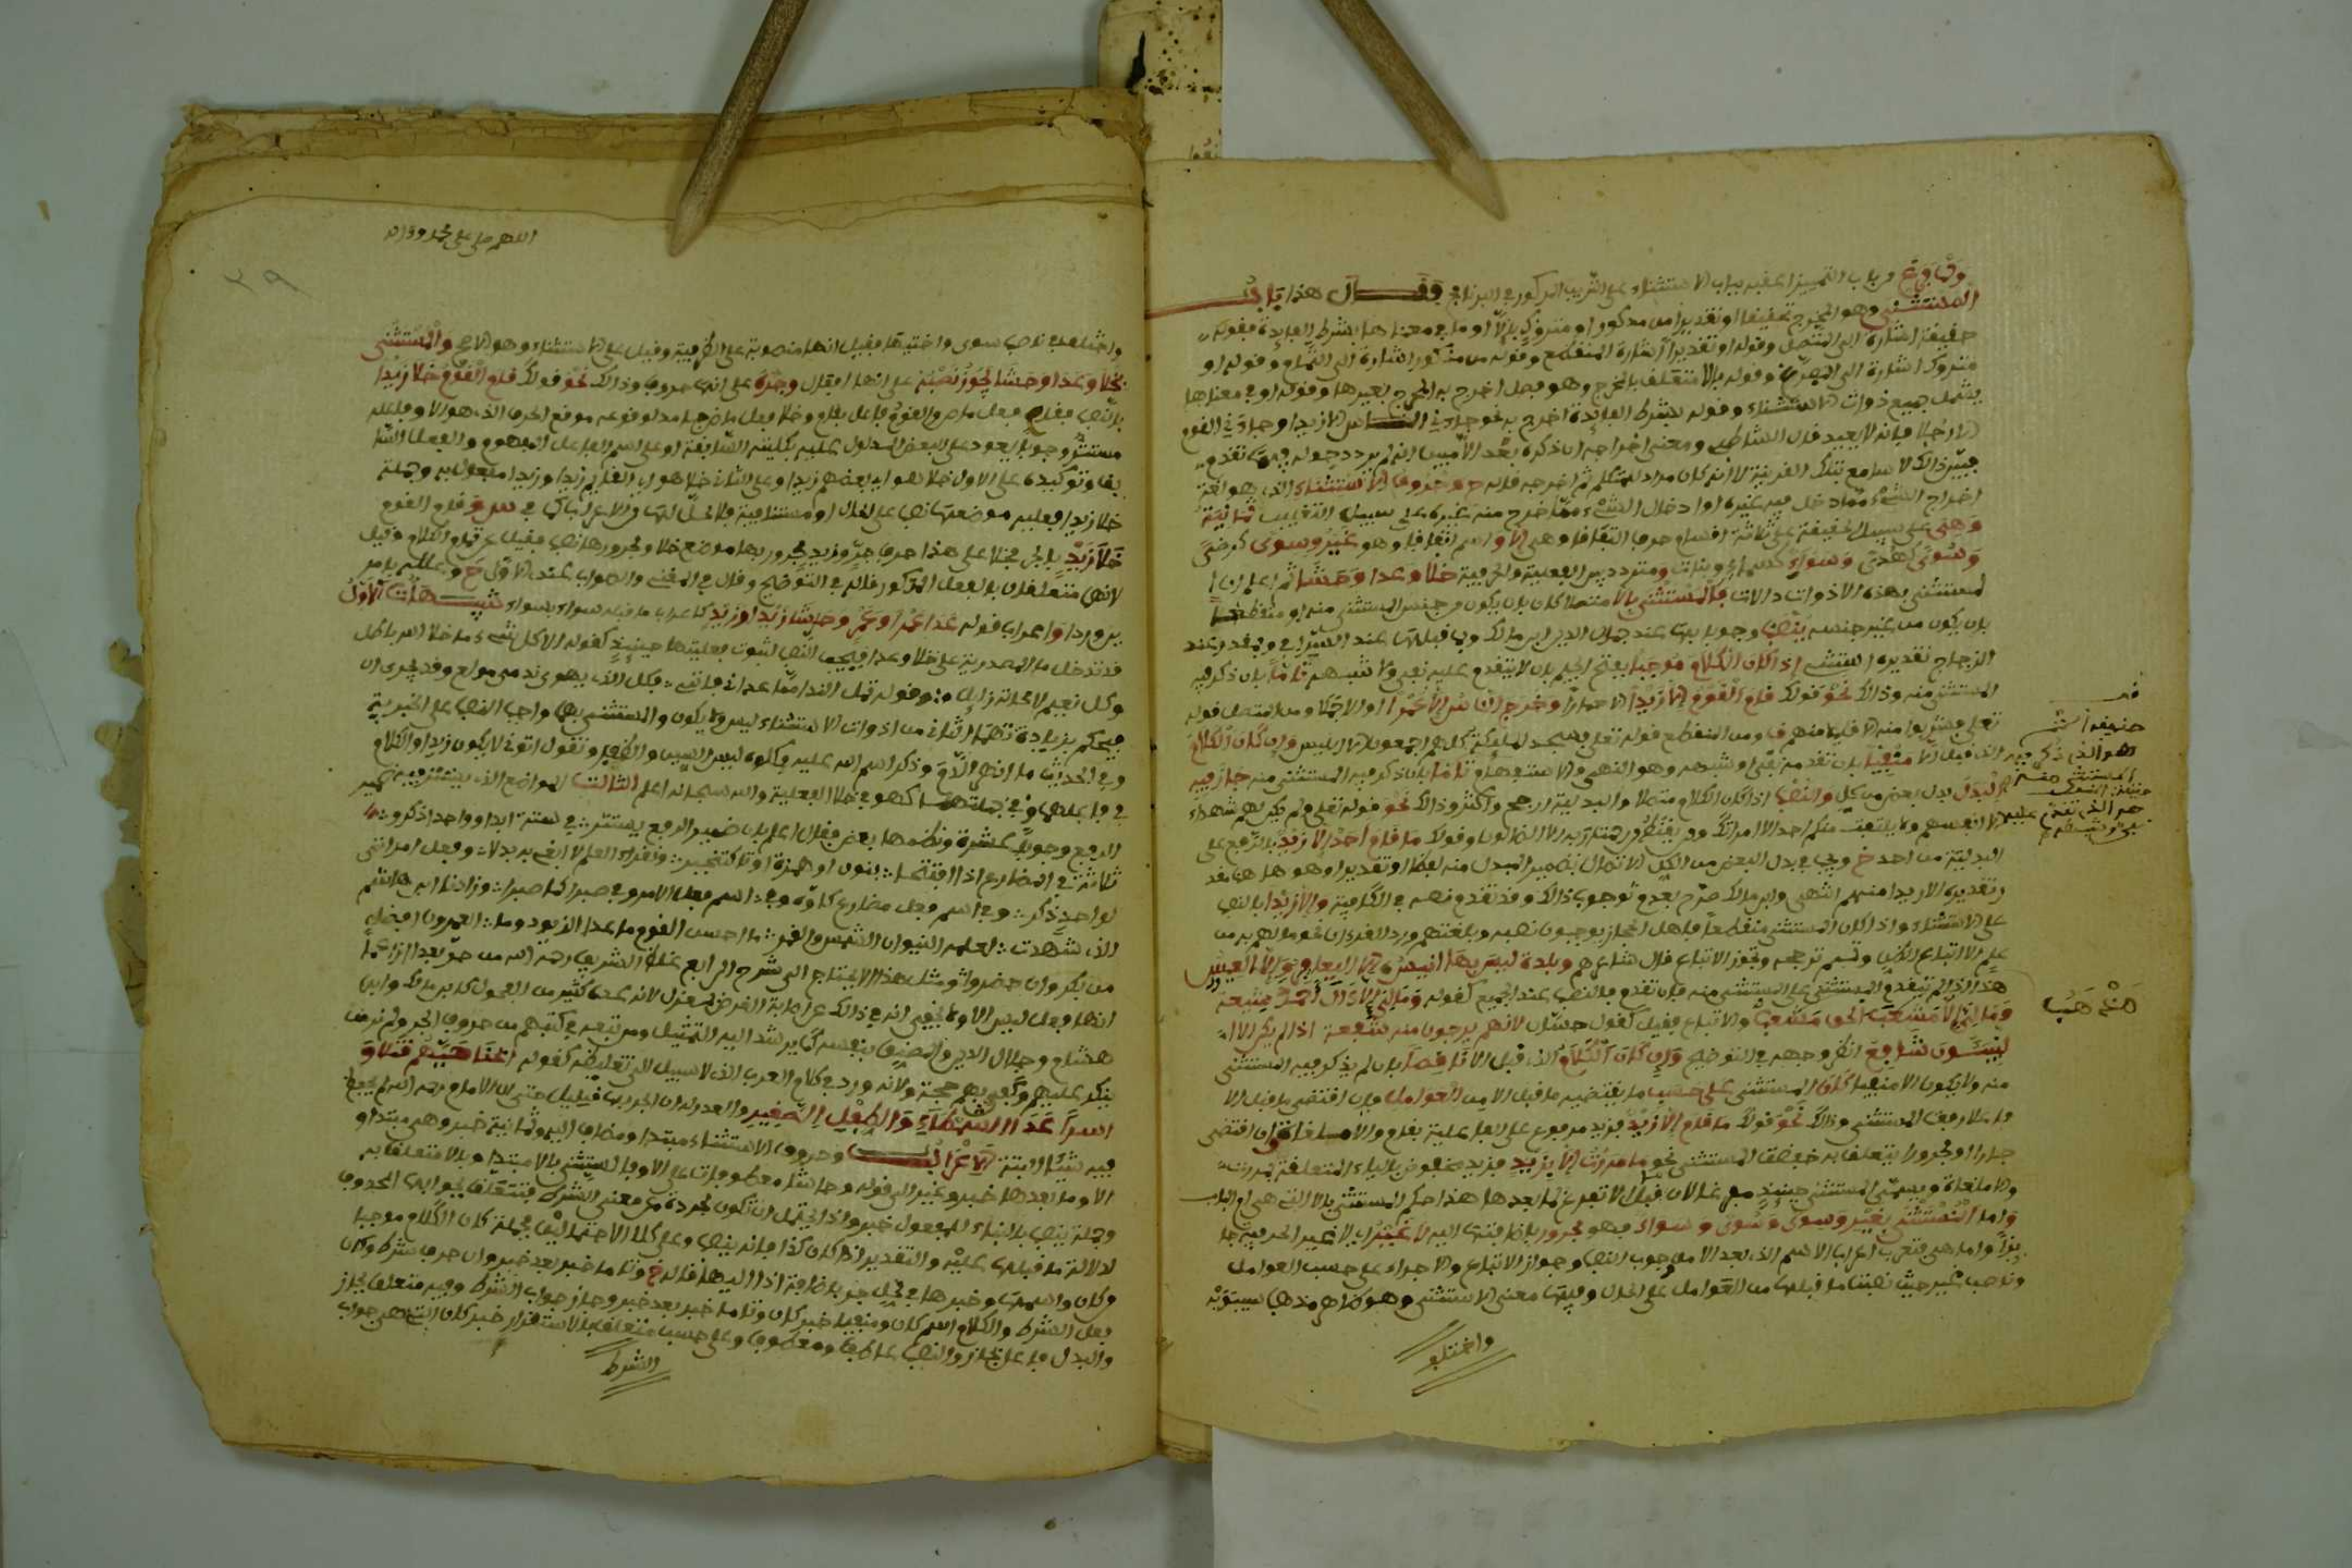 من باب التمييز اعقبه بباب الاستثناء على الترتيب المذكور في البرنامج فقال هذا باب
المستثنى وهو المخرج تحقيقا او تقديرا من مذكور او متروك بالا او ما في معناها بشرط الفايدة فقوله
حقيقة اشارة الى المتصل وقوله او تقديرا اشارة المنقطع وقوله من مذكور اشارة الى التمام وقوله او
متروك اشارة الى المفرغ وقوله بالا متعلق بالمخرج وهو فصل اخرج به المخرج بغيرها وقوله او في معناها
يشمل جميع ذوات الاستثناء وقوله بشرط الفايدة اخرج به نحو جاءني الناس الا زيدا وجاءني القوم
الا رجلا فانه لا يفيد قال الشاطبي ومعنى اخراجه ان ذكره بعد الا مبين انه لم يرد دخوله فيما تقدم
فبين ذالك للسامع بتلك القرينة لا انه كان مرادا للمتكلم ثم اخرجه وحروف الاستثناء الذي هو لغة
اخراج الشيء مما دخل فيه غيره او ادخال الشيء مما خرج منه غيره على سبيل التغليب ثمانية
وهي على سبيل الحقيقة على ثلاثة اقسام حرف اتفاقا وهي الا واسم اتفاقا وهو غير وسوى كرضى
وسوى كهدى وسواء كسماء وبناء ومتردد بين الفعلية والحرفية خلا وعدا وحاشا ثم اعلم ان
المستثنى بهذه الادوات حالات فالمستثنى بالا متصلا كان بان يكون من جنس المستثنى منه او منقطعا
بان يكون من غير جنسه ينصب وجوبا بها عند جمال الدين ابن مالك وبما قبلها عند السيرافي وبمقدر عند
الزجاج تقديره استثنى اذا كان الكلام موجبا بفتح الجيم بان لا يتقدم عليه نفي ولا شبهه تاما بان ذكر فيه
المستثنى منه وذالك نحو قولك قام القوم الا زيدا الا حمارا وخرج الناس الا عمرا او الا جملا ومن المتصل قوله
تعلى فشربوا منه الا قليلا منهم ومن المنقطع قوله تعلى فسجد الملائكة كلهم اجمعون الا ابليس وان كان الكلام
الذي قبل الا منفيا بان تقدمه نفي او شبهه وهو النهي والاستفهام وتاما بان ذكر فيه المستثنى منه جاز فيه
البدل بدل بعض من كل والنصب اذا كان الكلام متصلا والبدلية ارجح واكثر وذالك نحو قوله تعلى ولم يكن لهم شهداء
الا انفسهم ولا يلتفت منكم احد الا امراتك ومن يقنط من رحمة ربه الا الضالون وقولك ما قام احد الا زيد بالرفع على
البدلية من احد
وتقديره الا زيدا منهم انتهى وابن مالك صرح بعدم وجوب ذالك وقد تقدم نصه في الكافية والا زيدا بالنصب
على الاستثناء واذا كان المستثنى منقطعا فاهل الحجاز يوجبون نصبه وبلغتهم ورد القرءان نحو ما لهم به من
علم الا اتباع الظن وتميم ترجحه وتجوز الاتباع قال شاعرهم وبلدة ليس بها انيس الا اليعافير والا العيس
هذا اذا لم يتقدم المستثنى على المستثنى منه فان تقدم فالنصب عند الجميع كقوله وما لي الا ءال احمد شيعة
وما لي الا مشعب الحق مشعب والاتباع قليل كقول حسان لانهم يرجون منه شفاعة اذا لم يكن الا
النبيئون شافع انظر وجهه في التوضيح وان كان الكلام الذي قبل الا ناقصا بان لم يذكر فيه المستثنى
منه ولا يكون الا منفيا كان المستثنى على حسب ما يقتضيه ما قبل الا من العوامل فان اقتضى ما قبل الا
فاعلا رفع المستثنى وذالك نحو قولك ما قام الا زيد فزيد مرفوع على الفاعلية بقام والا ملغاة وان اقتضى
جارا ومجرورا يتعلق به خفض المستثنى نحو ما مررت الا بزيد فزيد مخفوض بالباء المتعلقة بمررت
والا ملغاة ويسمى المستثنى حينيذ مفرغا لان ما قبل الا تفرغ لما بعدها هذا حكم المستثنى بالا التي هي ام الباب
واما المستثنى بغير وسوى وسوى وسواء فهو مجرور باضافتها اليه لا غير اي لا غير الجر فيه جائزا
واما هي فتعرب اعراب الاسم الذي بعد الا من وجوب النصب وجواز الاتباع والاجراء على حسب العوامل
وناصب غير حيث نصبتها ما قبلها من العوامل على الحال وفيها معنى الاستثنى وهو ظاهر مذهب سيبويه
واختلف
هو الذي ذكر فيه
المستثنى منه
هو الذي تقدم عليه
نفي او شبهه
مذهب
اللهم صل على محمد وءاله
٢٩
واختلف في ناصب سوى واختيها فقيل انها منصوبة على الظرفية وقيل على الاستثناء وهو الاصح والمستثنى
بخلا وعدا وحاشا يجوز نصبه على انها افعال وجره على انها حروف وذالك نحو قولك قام القوم خلا زيدا
بالنصب فقام فعل ماض والقوم فاعل بقام وخلا فعل ماض جامد لوقوعه موقع الحرف الذي هو الا وفاعله
مستتر وجوبا يعود على البعض المدلول عليه بكليته السابقة او على اسم الفاعل المفهوم من الفعل السا
بق وتوكيده على الاول خلا هو اي بعضهم زيدا وعلى الثاني خلا هو اي القايم زيدا وزيدا مفعول به وجملة
خلا زيدا فعلية موضعها نصب على الحال او مستانفية فلا محل لها من الاعراب وقام القوم
خلا زيد بالجر فخلا على هذا حرف جر وزيد مجرور بها موضع خلا ومجرورها نصب فقيل عن تمام الكلام وقيل
لانهما متعلقان بالفعل المذكور قاله في التوضيح وقال في المغني والصواب عندي الاول
واعراب قوله عدا عمرا وعمرو وحاشا زيدا وزيد كاعراب ما قبله سواء بسواء تنبيهات الاول
قد تدخل ما المصدرية على خلا وعدا فيجب النصب لثبوت فعليتهما حينيذ كقوله الا كل شيء ما خلا الله باطل
وكل نعيم لا محالة زايل وقوله تمل الندامى ما عداني فانني بكل الذي يهوى نديمي مولع وقد يجرى ان
فيحكم بزيادة ما الثاني من ادوات الاستثناء ليس ولا يكون والمستثنى بهما واجب النصب على الخبرية
وفي الحديث ما انهر الدم وذكر اسم الله عليه فكلوه ليس السن والظفر وتقول اتوني لا يكون زيدا والكلام
في فاعلهما وفي جملتهما كهو في خلا الفعلية والله سبحانه اعلم الثالث المواضع الذي يستتر فيه ضمير
الرفع وجوبا عشرة ونظمها بعض فقال اعلم بان ضمير الرفع يستتر في ستة ابدا وواحدا ذكروا
ثلاثة في المضارع بنون او همزة او تا كنختبر وفعل امر اتى
لواحد ذكر وفي اسم فعل مضارع كاوه وفي اسم فعل الامر وفي صبرا كما صبرا وزادنا ابن هاشم
الذي شهدت لعلمه النيران الشمس والقمر ما احسن القوم ما عدا الزيود وما العمرون افضل
من بكر وان حضروا ومثل هذا لا يحتاج الى شرح الرابع
انها فعل ليس الا ولا يخفى انه في ذالك عن اصابة الغرض بمعزل لانه عدى كثير من الفحول كابن مالك وابن
هشام وجلال الدين والمصنف بنفسه كما يرشد اليه التمثيل ومن تبعه في كتبهم من حروف الجر ولم نر من
ينكر عليهم وكفى بهم حجة ولانه ورد في كلام العرب الذي لا سبيل الى تغليطه كقوله ابحنا حيهم قتلا و
اسرا عدا الشمطاء والطفل الصغير والعذر له ان الجر بها قليل حتى ان الامام رحمه الله لم يحفظ
فيه شيئا البتة الاعراب وحروف الاستثناء مبتدا ومضاف اليه وثمانية خبر وهي مبتدا و
الا وما بعدها خبر وغير الى قوله وحاشا معطوفات على الا وبالمستثنى بالا مبتدا وبالا متعلق به
وجملة ينصب بالبناء للمفعول خبر واذا يحتمل ان تكون مجردة عن معنى الشرط فتتعلق بجوابها المحذوف
لدلالة ما قبلها عليه والتقدير اذا كان كذا فانه ينصب وعلى كلا الاحتمالين فجملة كان الكلام موجبا
وكان واسمها وخبرها في محل جر باضافة اذا اليها وتاما خبر بعد خبر وان حرف شرط وكان
فعل الشرط والكلام اسم كان ومنفيا خبر كان وتاما خبر بعد خبر وجاز جواب الشرط وفيه متعلق بجاز
والبدل فاعل بجاز والنصب عاطف ومعطوف وعلى حسب متعلق بالاستقرار خبر كان التي هي جواب
الشرط